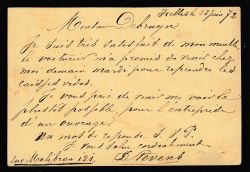 Monsieur Debruyn
Je suis très satisfait de mon meuble
le voiturier m'a promis de venir chez
mon demain mardi pour reprendre les
caisses vides.
Je vous prie de venir me voir le
plus tôt possible, pour l'entreprise
d'un ouvrage.
Un mot de réponse S. V. P.
Je vous salue cordialement
rue Malibran 121. D. Stevens